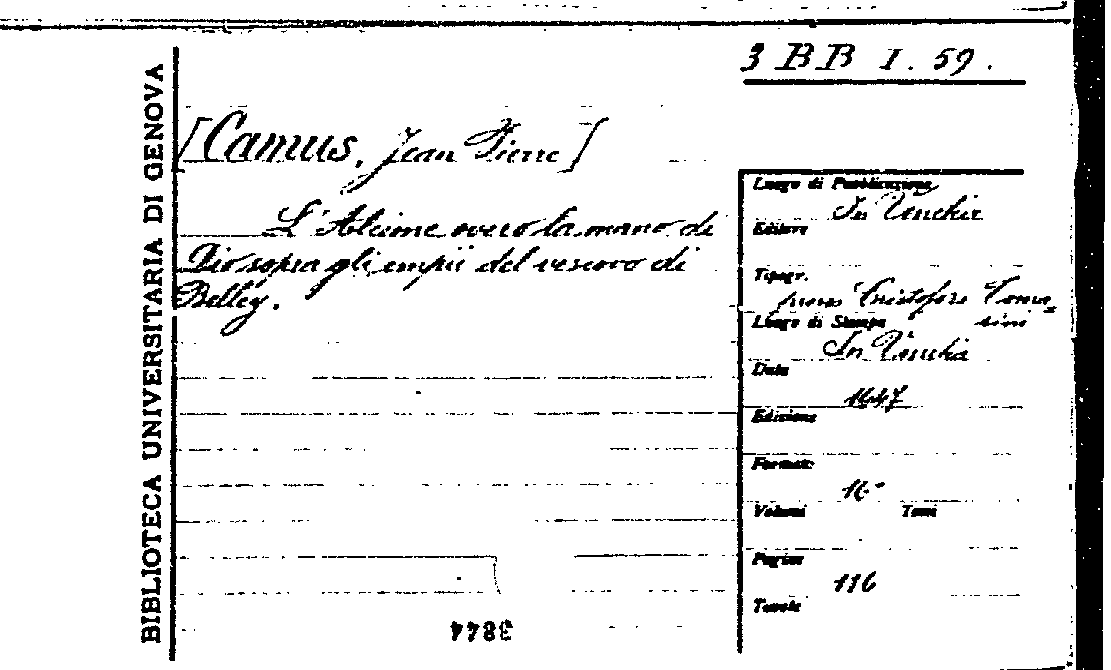 3 BB I. 59.
BIBLIOTECA UNIVERSITARIA DI GENOVA
[Camus, Jean Pierre]
L'Alcime overo la mano di
Dio sopra gli empii del vescovo di
Belley.
Luogo di Pubblicazione
In Venetia
Editore
Tipogr.
press Cristoforo Toma=
sini
Luogo di Stampa
In Venetia
Data
1647
Edizione
Formato
16°
Volumi Tomi
Pagine
116
Tavole
3844